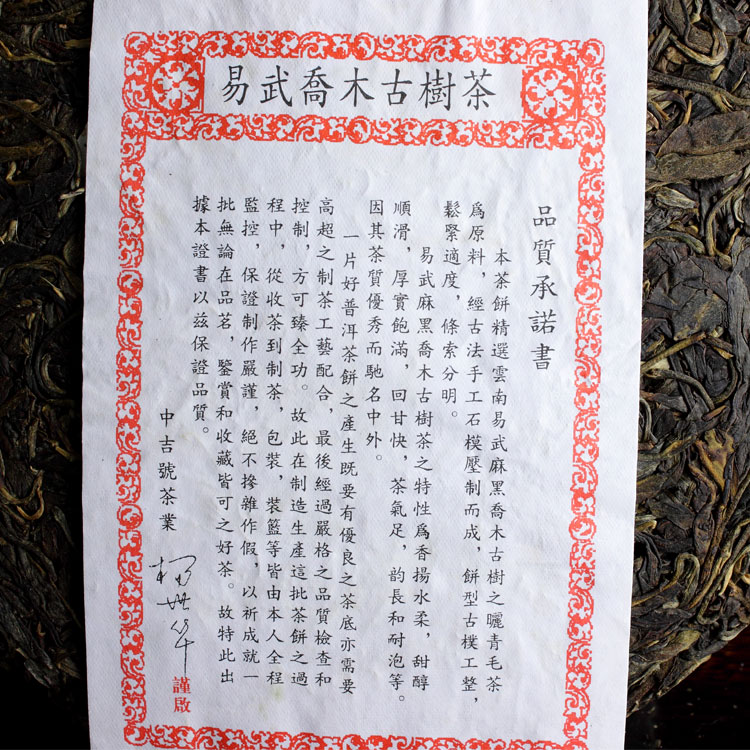 易武喬木古樹茶
品質承諾書
本茶餅精選雲南易武麻黑喬木古樹之曬青毛茶
爲原料，經古法手工石模壓制而成，餅型古樸工整，
鬆緊適度，條索分明。
易武麻黑喬木古樹茶之特性爲香揚水柔，甜醇
順滑，厚實飽滿，回甘快，茶氣足，韵長和耐泡等。
因其茶質優秀而馳名中外。
一片好普洱茶餅之產生既要有優良之茶底亦需要
高超之制茶工藝配合，最後經過嚴格之品質檢查和
控制，方可臻全功。故此在制造生產這批茶餅之過
程中，從收茶到制茶，包裝，裝籃等皆由本人全程
監控，保證制作嚴謹，絕不摻雜作假，以祈成就一
批無論在品茗，鑒賞和收藏皆可之好茶。故特此出
據本證書以兹保證品質。
中吉號茶業
謹啟